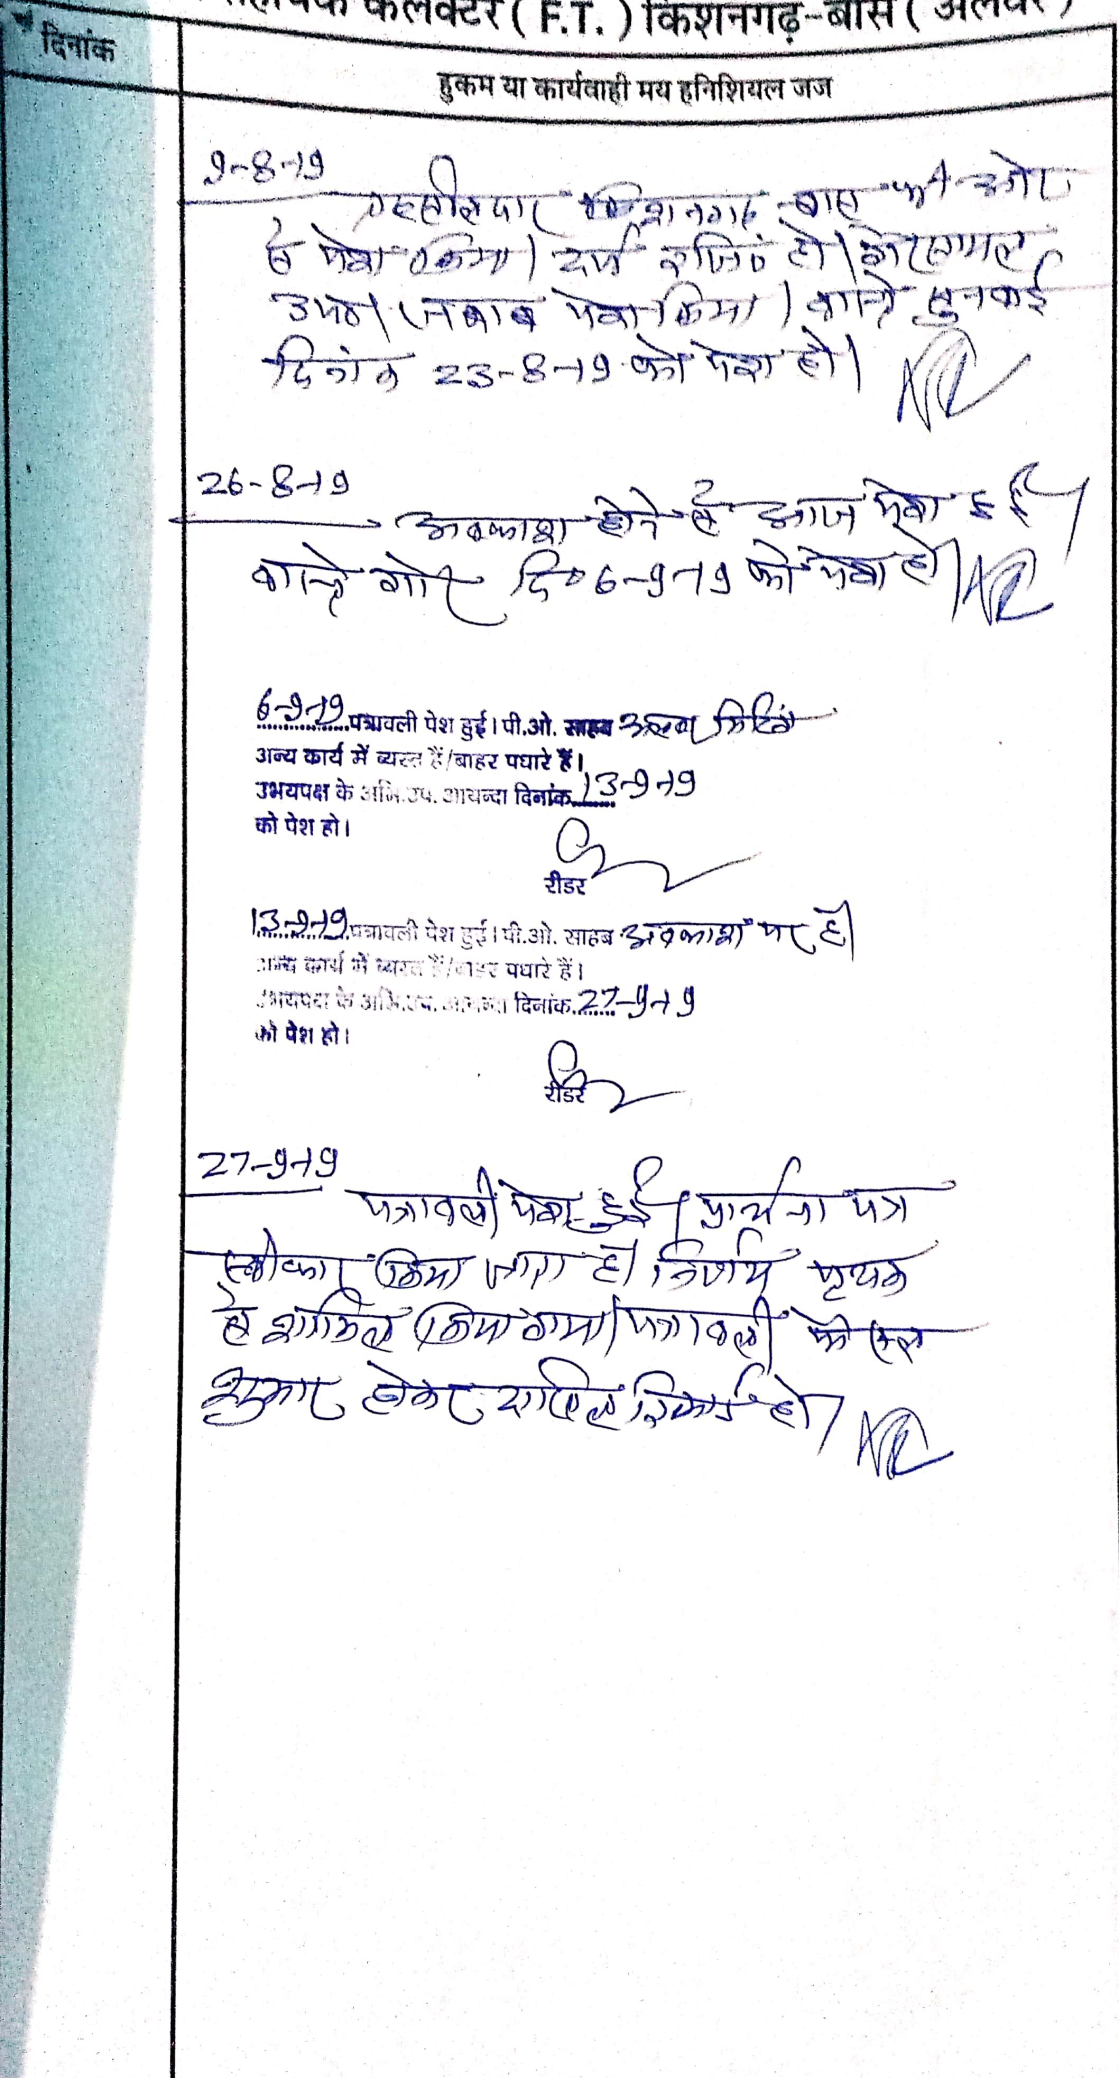 सहायक कलक्टर ( F.T. ) किशनगढ़-बास ( अलवर )
दिनांक
हुकम या कार्यवाही मय इनिशियल जज
9-8-19
तहसीलदार किशनगढ़ बास की ओर
से पेश किया। दर्ज रजि० हो।
उप०। जवाब पेश किया। वास्ते सुनवाई
दिनांक 23-8-19 को पेश हो।
26-8-19
अवकाश होने से आज पेश हुई।
वास्ते गौर दि० 6-9-19 को पेश हो।
6-9-19 पत्रावली पेश हुई। पी.ओ. साहब
अन्य कार्य में व्यस्त हैं/बाहर पधारे हैं।
उभयपक्ष के अभि.उप. आयन्दा दिनांक 13-9-19
को पेश हो।
रीडर
13-9-19 पत्रावली पेश हुई। पी.ओ. साहब अवकाश पर है।
अन्य कार्य में व्यस्त हैं/बाहर पधारे हैं।
उभयपक्ष के अभि.उप. आयन्दा दिनांक 27-9-19
को पेश हो।
रीडर
27-9-19
पत्रावली पेश हुई। प्रार्थना पत्र
स्वीकार किया जाता है। निर्णय पृथक
से शामिल किया गया। पत्रावली फैसल
शुमार होकर दाखिल रिकार्ड हो।